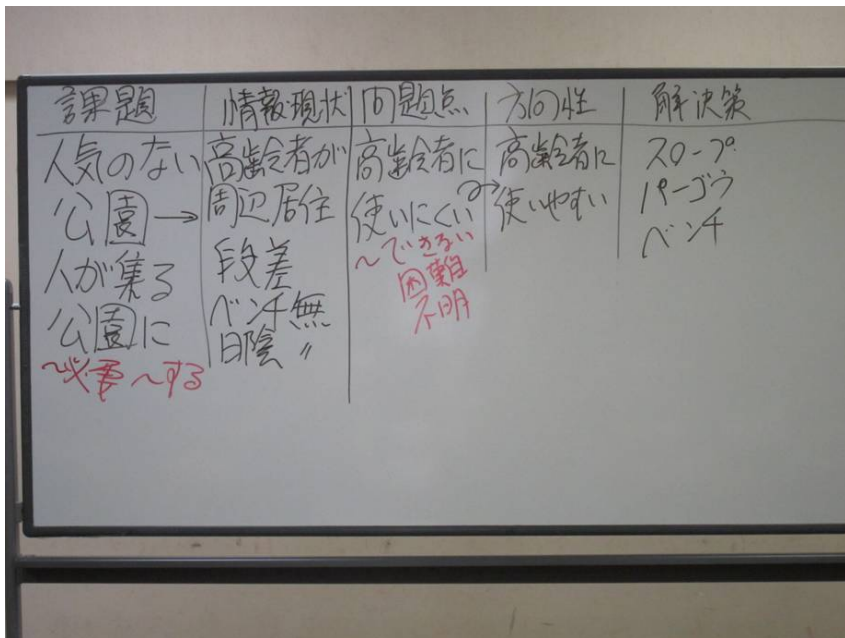 課題
人気のない
公園→
人が集る
公園に
～する
情報現状
高齢者が
周辺居住
段差
ベンチ無
日陰〃
問題点
高齢者に
使いにくい
～できない
困難
不明
方向性
高齢者に
使いやすい
解決策
スロープ
パーゴラ
ベンチ